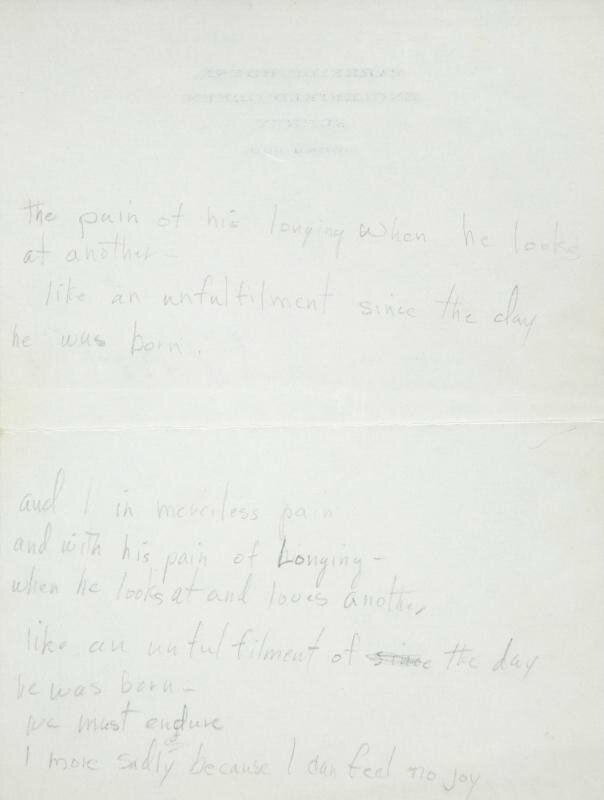 PARKSIDE HOUSE
ENGLEFIELD GREEN
SURREY
the pain of his longing when he looks
at another –
like an unfulfilment since the day
he was born.
and I in merciless pain
and with his pain of Longing –
when he looks at and loves another
like an unfulfilment of since the day
he was born –
we must endure
I more sadly because I can feel no joy